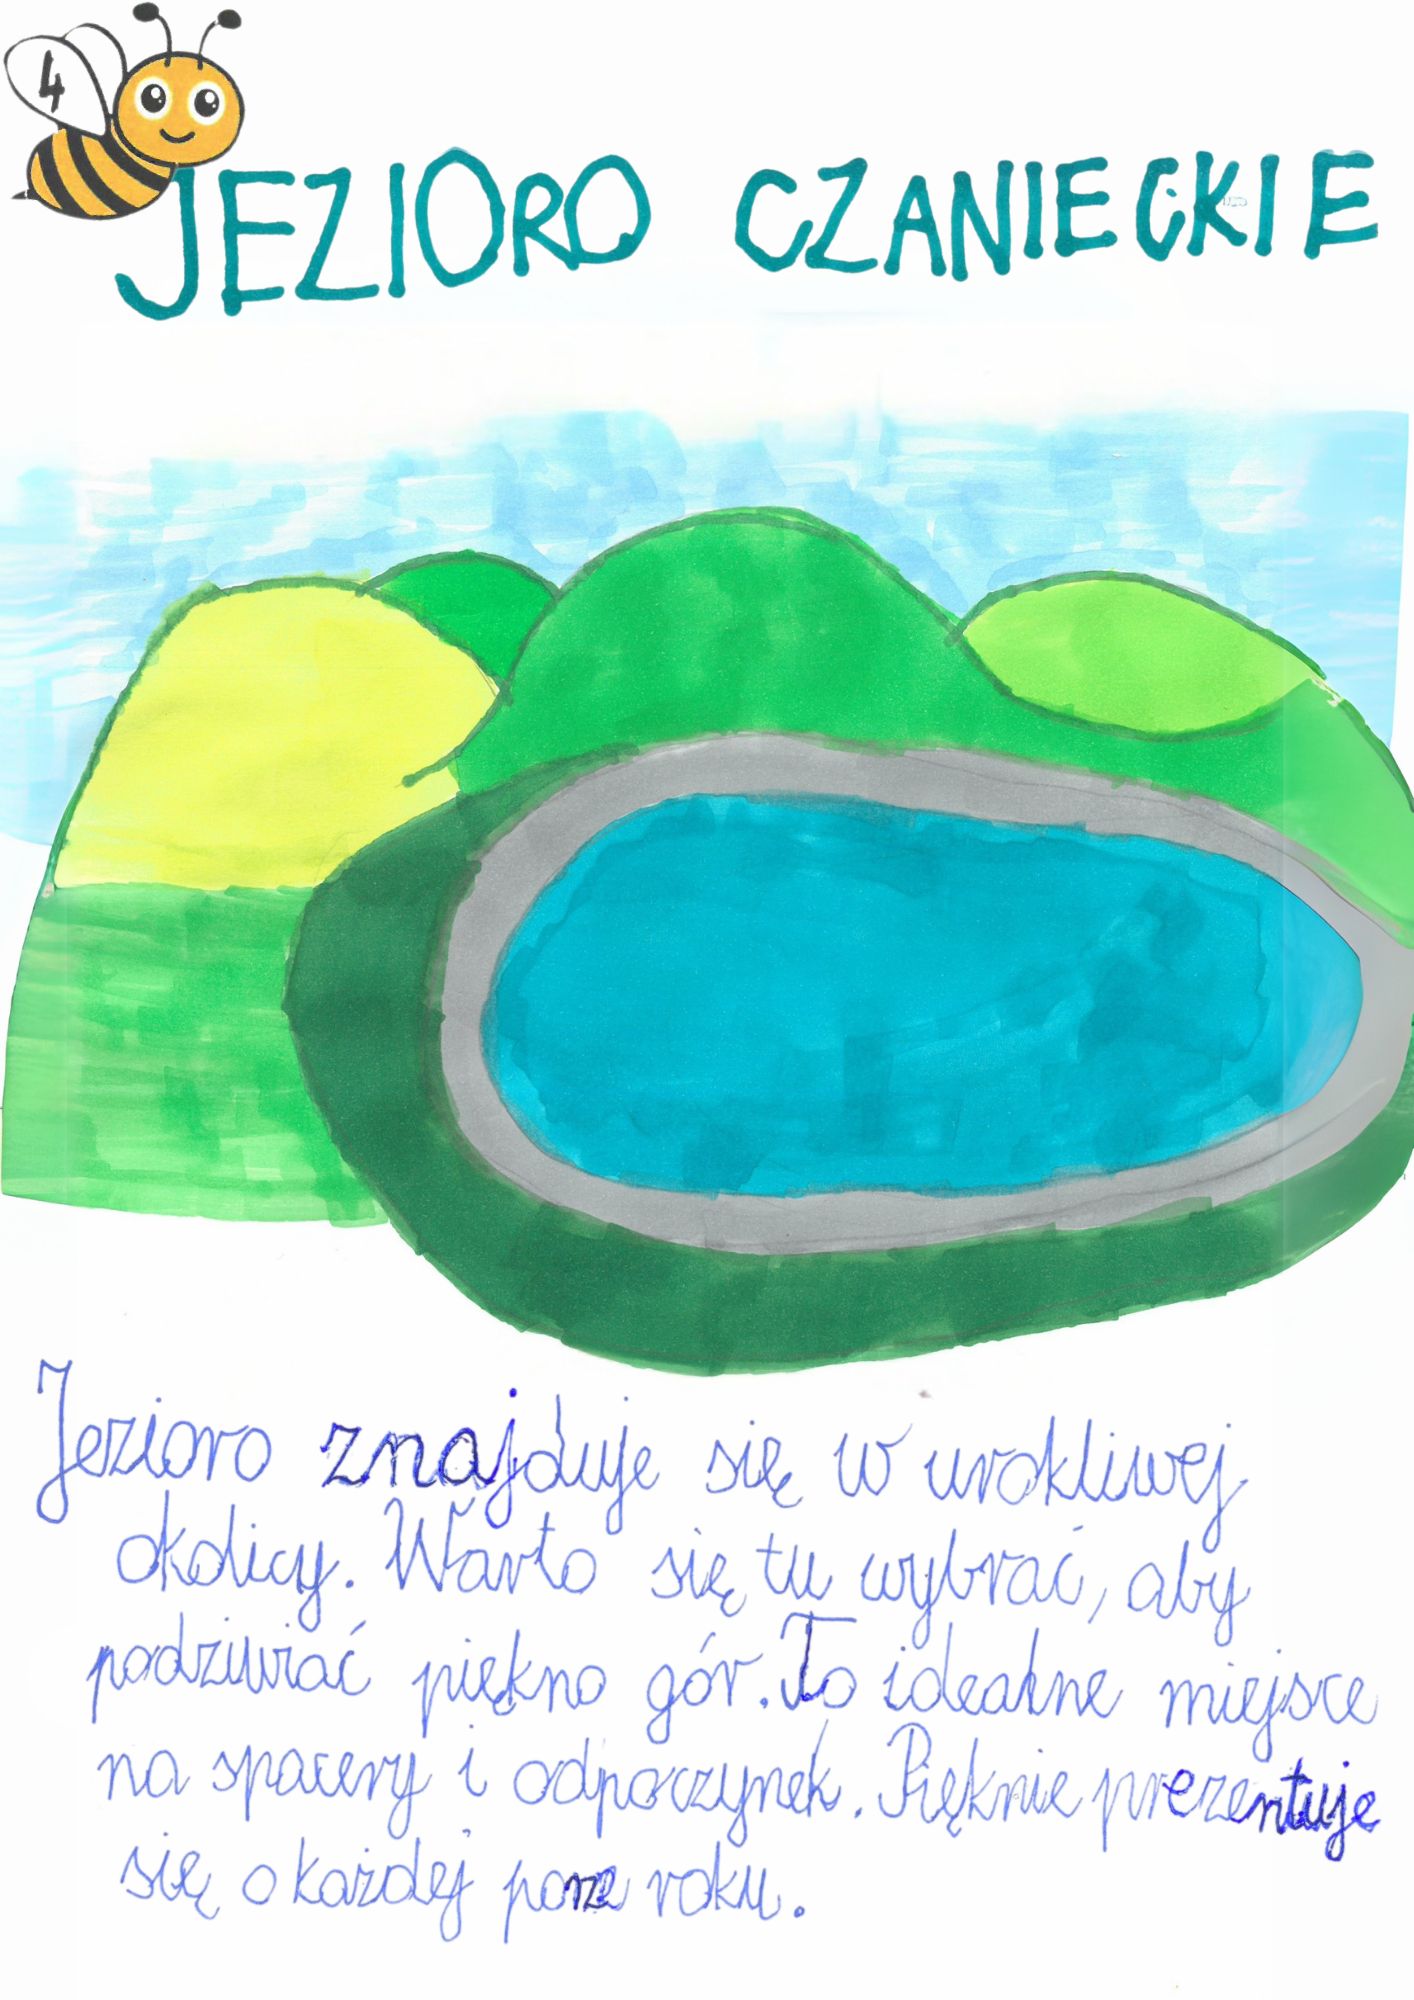 4
JEZIORO CZANIECKIE
Jezioro znajduje się w urokliwej
okolicy. Warto się tu wybrać, aby
podziwiać piękno gór. To idealne miejsce
na spacery i odpoczynek. Pięknie prezentuje
się o każdej porze roku.